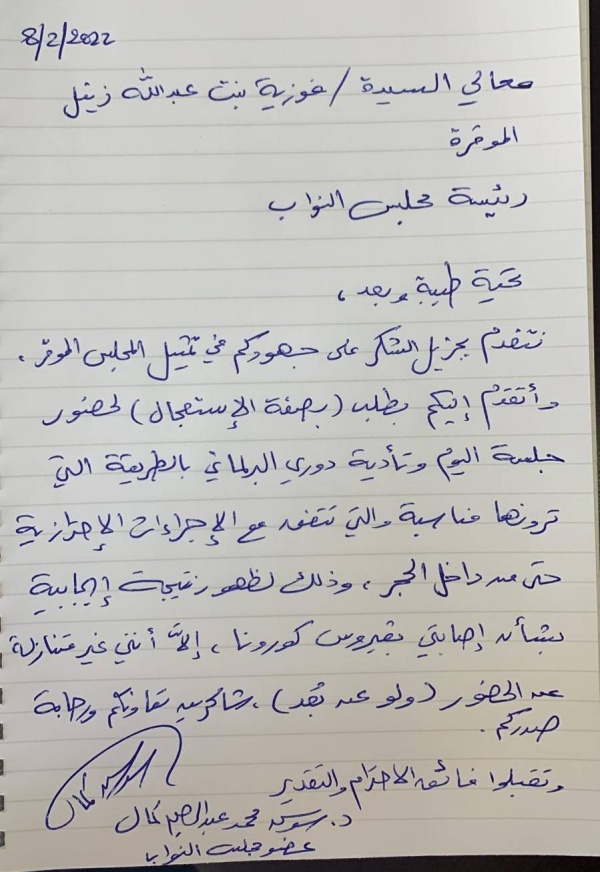 8/2/2022
معالي السيدة / فوزية بنت عبدالله زينل
الموقرة
رئيسة مجلس النواب
تحية طيبة وبعد ،
نتقدم بجزيل الشكر على جهودكم في تمثيل المجلس الموقر .
وأتقدم إليكم بطلب (بصفة الإستعجال) لحضور
جلسة اليوم وتأدية دوري البرلماني بالطريقة التي
ترونها مناسبة والتي تتفق مع الإجراءات الإحترازية
حتى من داخل الحجر ، وذلك لظهور نتيجة إيجابية
بشأن إصابتي بفيروس كورونا ، إلاَّ أنني غير متنازلة
عن الحضور (ولو عن بُعد) ، شاكرين تعاونكم ورحابة
صدركم .
وتقبلوا فائق الاحترام والتقدير
د. سوسن محمد عبدالرحيم كمال
عضو مجلس النواب